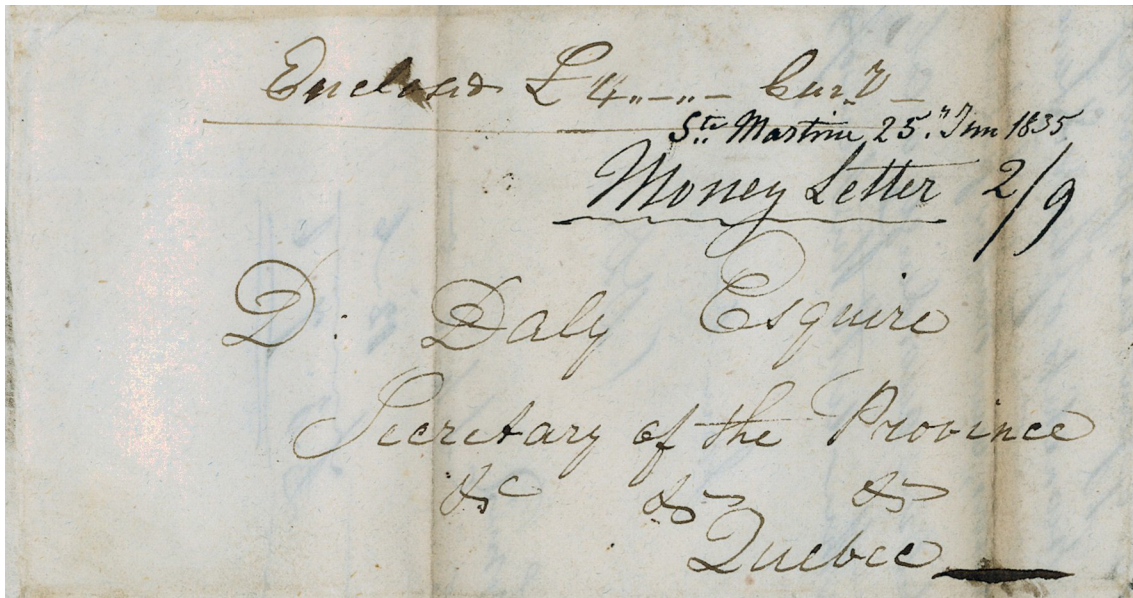 Enclosed £4,,–,,– Cur.y –
Ste. Martine 25." Jan 1835
Money Letter 2/9
D. Daly Esquire
Secretary of the Province
&c &c &c
Quebec